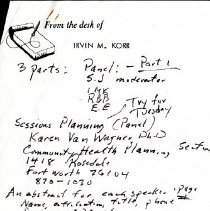 From the desk of
IRVIN M. KORR
3 parts: Panel: - Part 1
S.J moderator
IMK
RBB
EE
Try for
Tuesday
Sessions Planning (Panel)
Karen Van Wagner Ph.D
Community Health Planning Section
1418 Rosedale
Fort Worth 76104
870-1030
An abstract for each speaker - page
Name, affiliation, title, phone